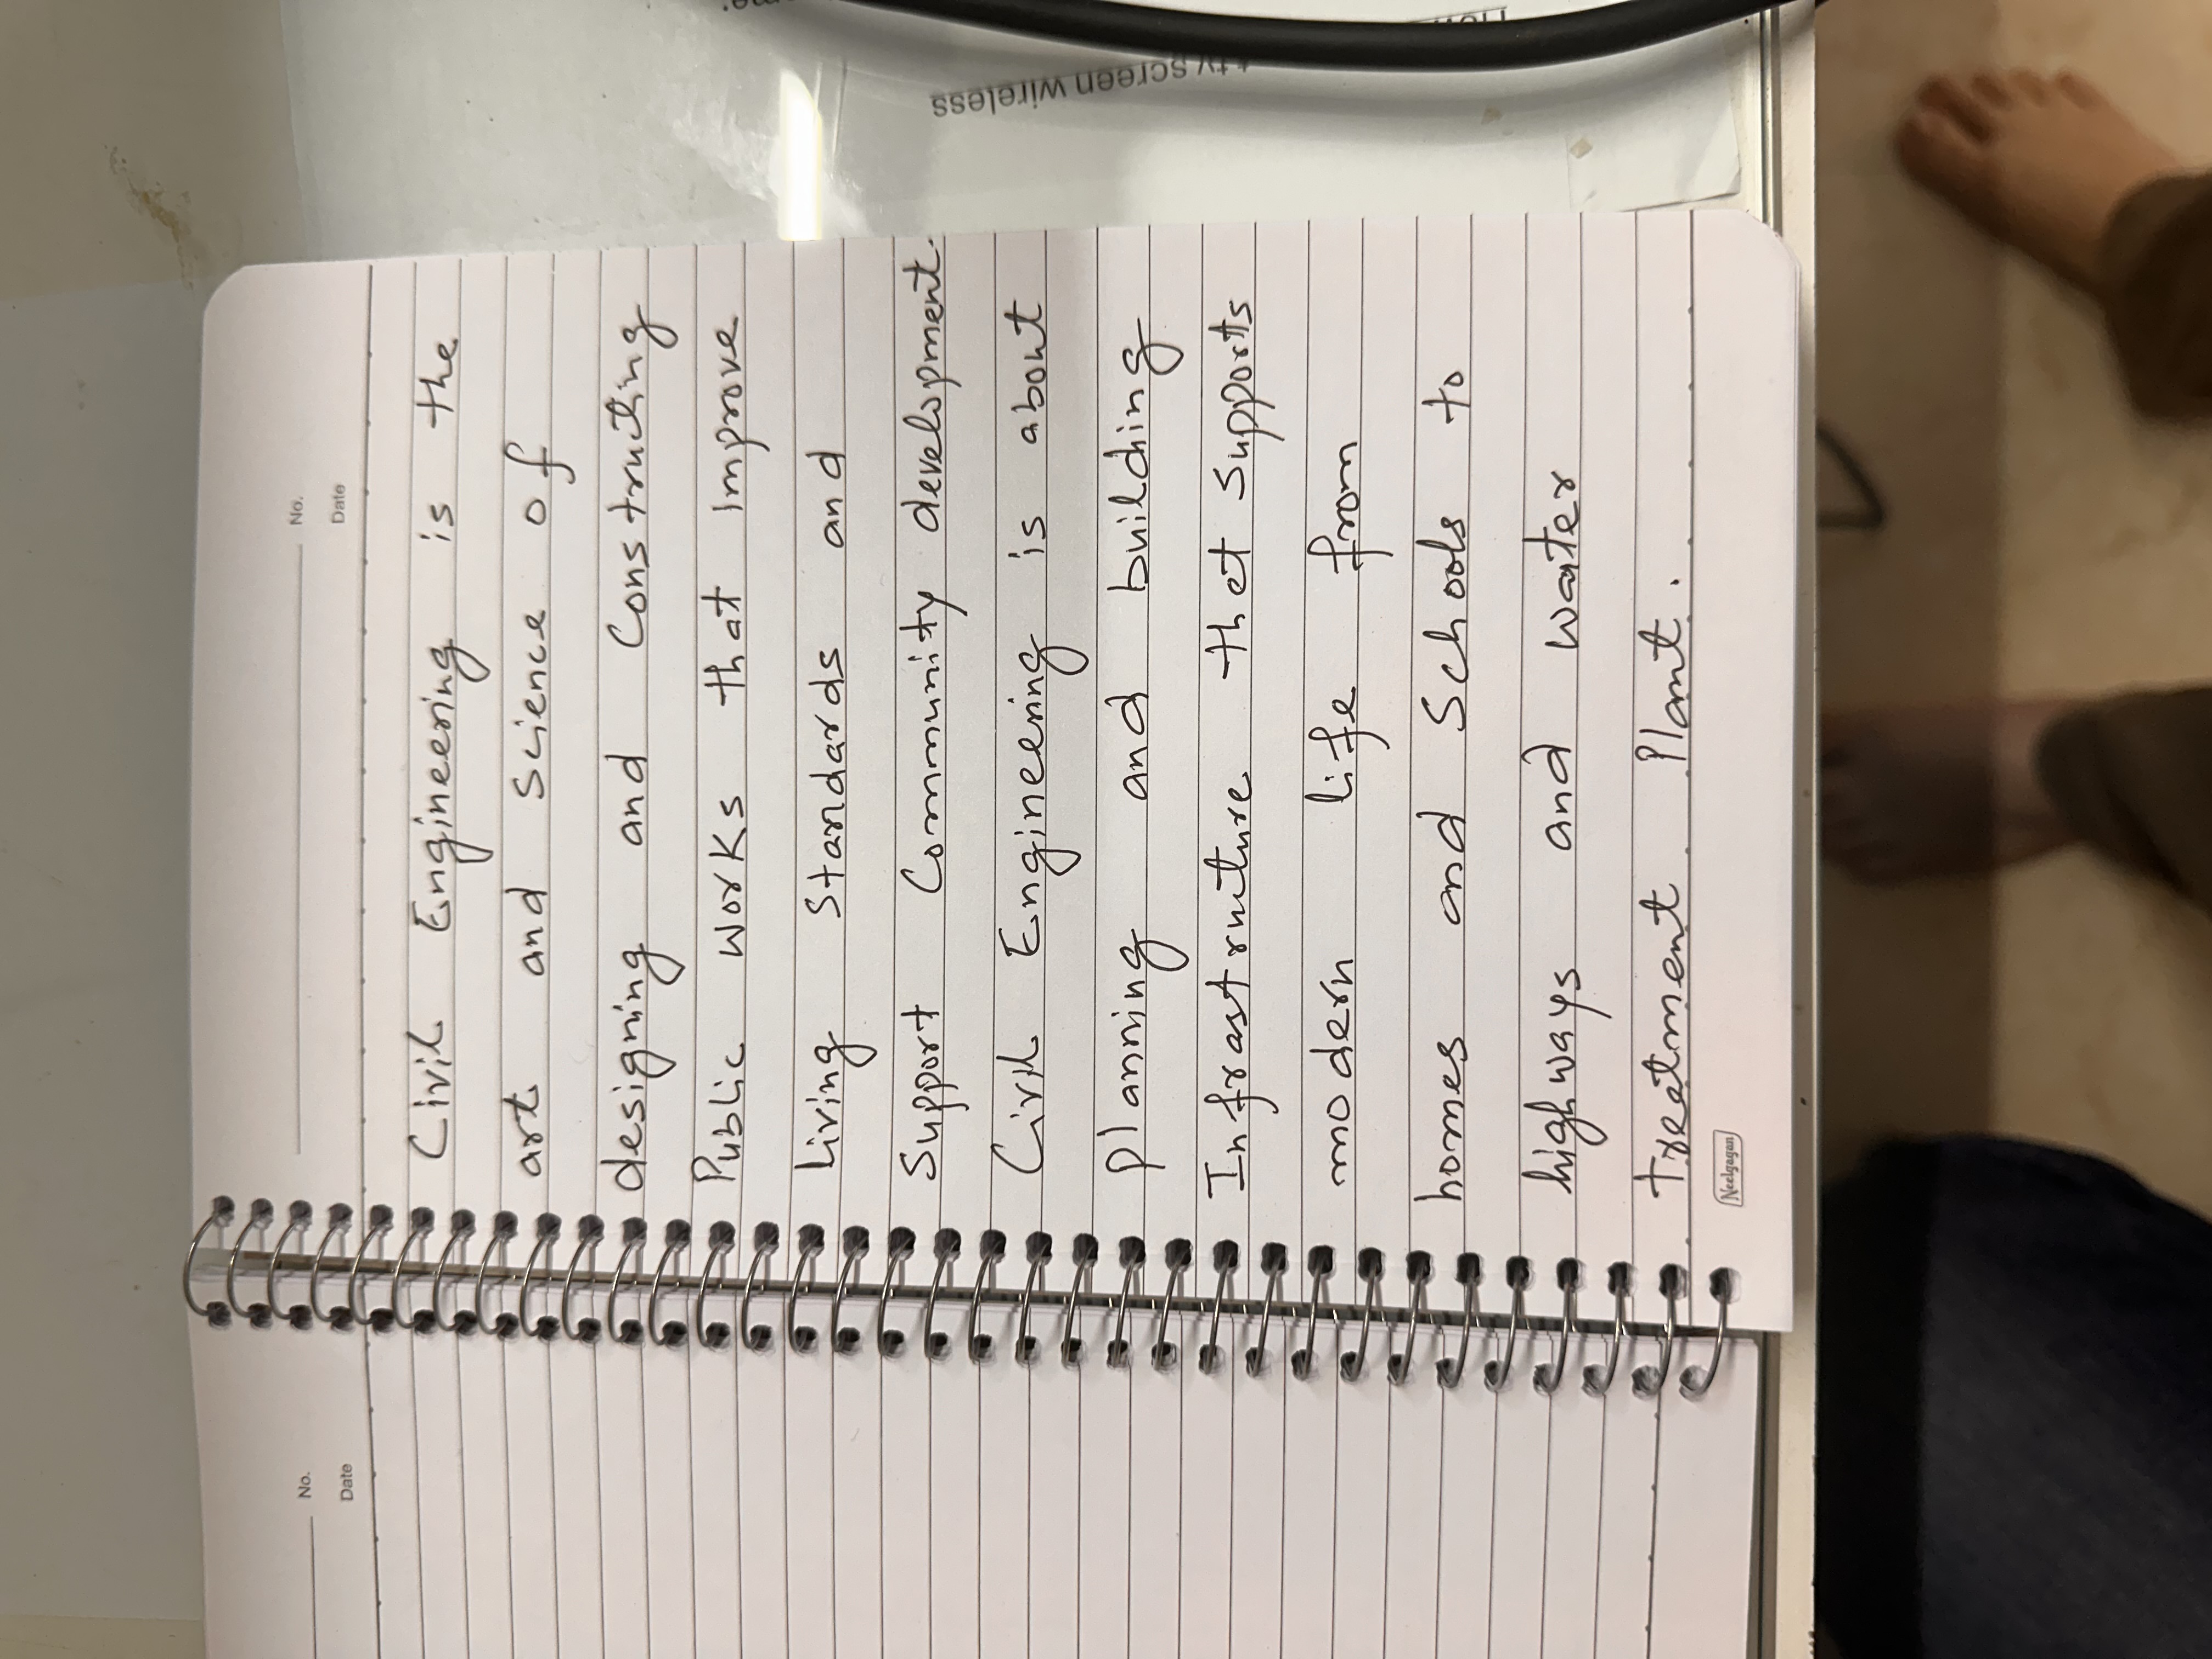 No.
Date
Civil Engineering is the
art and science of
designing and Constructing
Public works that improve
living Standards and
Support Community development.
Civil Engineering is about
planning and building
Infrastructure that supports
modern life from
homes and Schools to
highways and water
treatment Plant.
Neelgagan
No.
Date
tv screen wireless